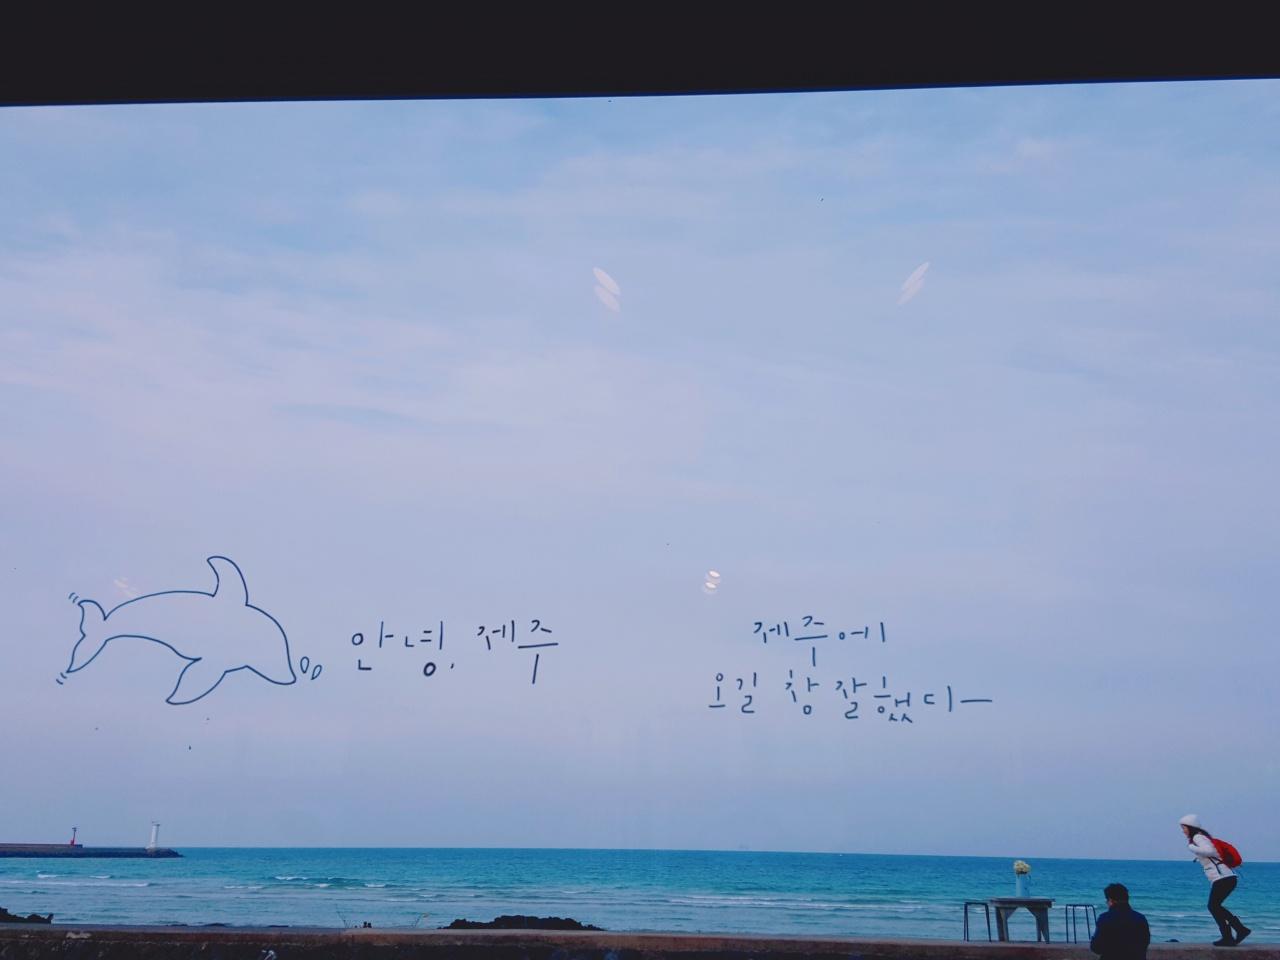 안녕, 제주
제주에
오길 참 잘했다